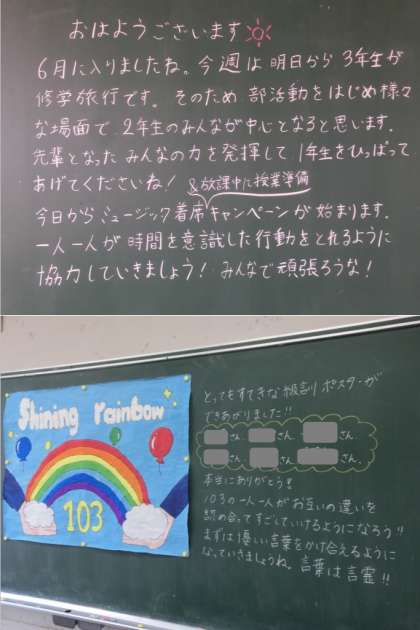 おはようございます
6月に入りましたね。今週は明日から3年生が
修学旅行です。そのため部活動をはじめ様々
な場面で2年生のみんなが中心となると思います。
先輩となったみんなの力を発揮して1年生をひっぱって
あげてくださいね!
&放課中に授業準備
今日からミュージック着席キャンペーンが始まります。
一人一人が時間を意識した行動をとれるように
協力していきましょう!みんなで頑張ろうな!
Shining rainbow
103
とってもすてきな級訓ポスターが
できあがりました!!
さん、 さん、 さん、
さん、 さん、 さん、
本当にありがとう!!
103の一人一人がお互いの違いを
認め合ってすごしていけるようになろう!!
まずは優しい言葉をかけ合えるように
なっていきましょうね。言葉は言霊!!